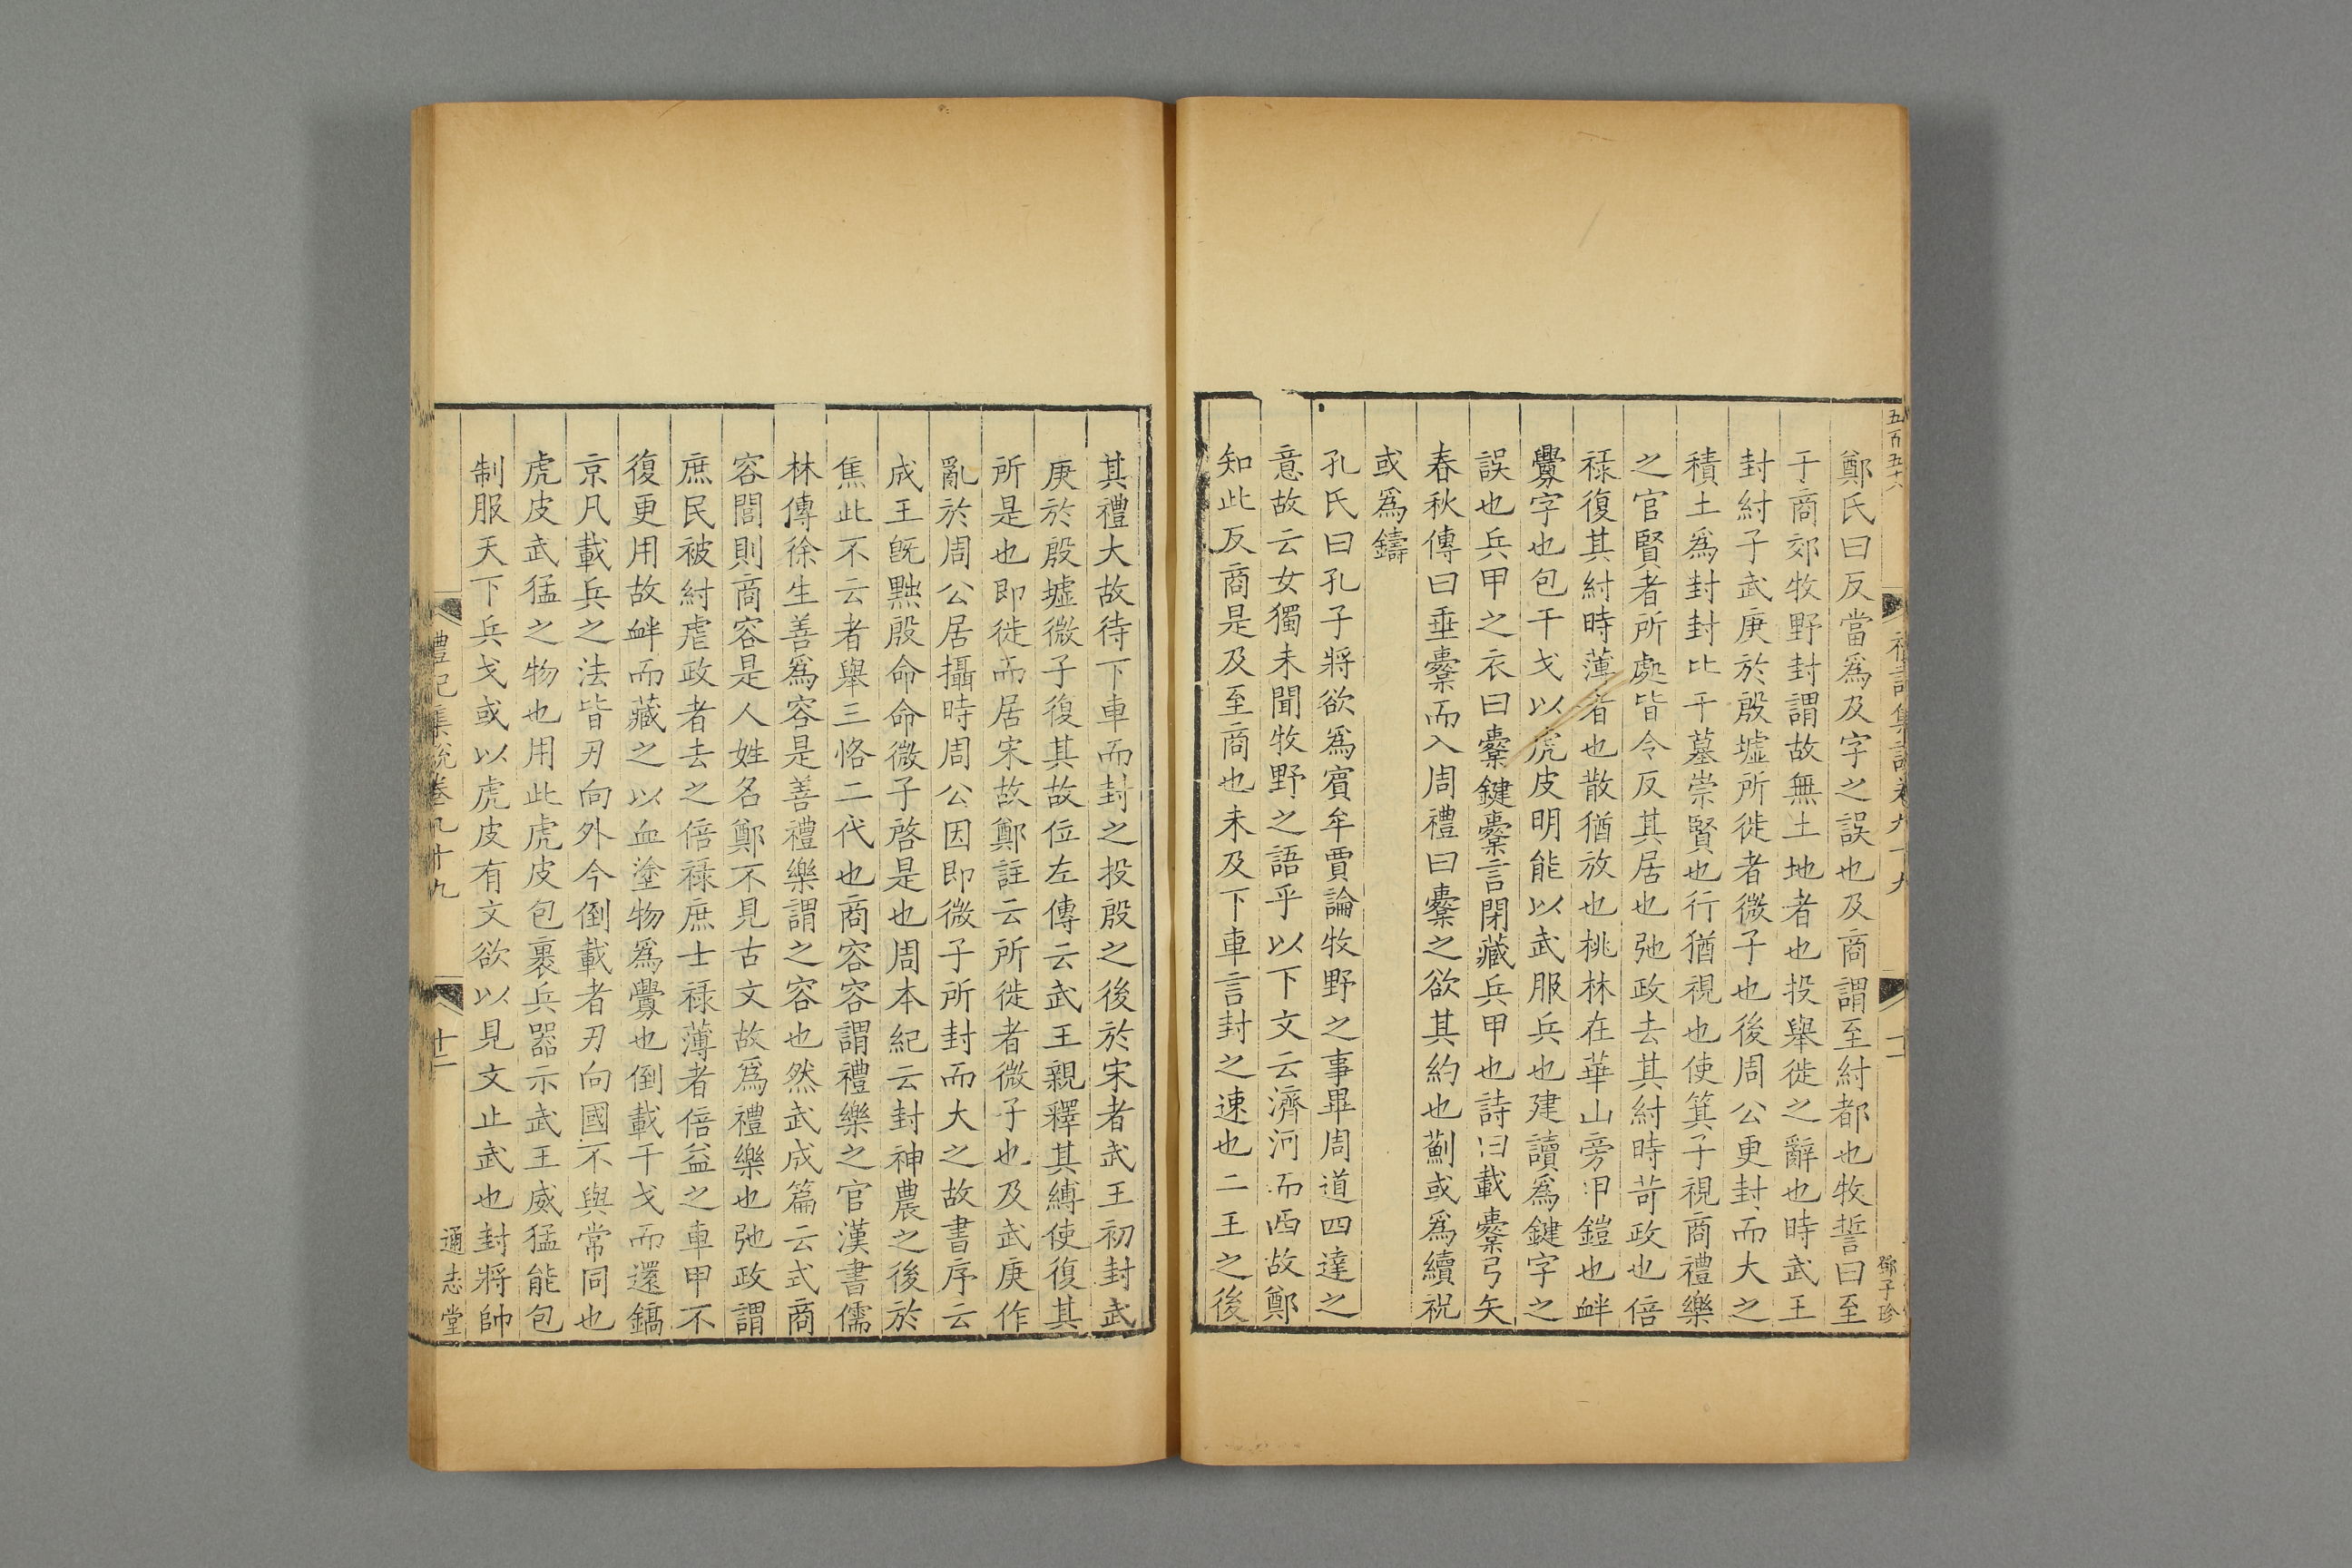 五百五十八
禮記集說卷九十九
十一
鄧子珍
鄭氏曰反當爲及字之誤也及商謂至紂都也牧誓曰至
于商郊牧野封謂故無土地者也投舉徙之辭也時武王
封紂子武庚於殷墟所徙者微子也後周公更封而大之
積土爲封封比干墓崇賢也行猶視也使箕子視商禮樂
之官賢者所處皆令反其居也弛政去其紂時苛政也倍
祿復其紂時薄者也散猶放也桃林在華山旁甲鎧也衅
釁字也包干戈以虎皮明能以武服兵也建讀爲鍵字之
誤也兵甲之衣曰櫜鍵櫜言閉藏兵甲也詩曰載櫜弓矢
春秋傳曰垂櫜而入周禮曰櫜之欲其約也薊或爲續祝
或爲鑄
孔氏曰孔子將欲爲賓牟賈論牧野之事畢周道四達之
意故云女獨未聞牧野之語乎以下文云濟河而西故鄭
知此反商是及至商也未及下車言封之速也二王之後
其禮大故待下車而封之投殷之後於宋者武王初封武
庚於殷墟微子復其故位左傳云武王親釋其縛使復其
所是也即徙而居宋故鄭註云所徙者微子也及武庚作
亂於周公居攝時周公因即微子所封而大之故書序云
成王旣黜殷命命微子啓是也周本紀云封神農之後於
焦此不云者舉三恪二代也商容容謂禮樂之官漢書儒
林傳徐生善爲容是善禮樂謂之容也然武成篇云式商
容閭則商容是人姓名鄭不見古文故爲禮樂也弛政謂
庶民被紂虐政者去之倍祿庶士祿薄者倍益之車甲不
復更用故衅而藏之以血塗物爲釁也倒載干戈而還鎬
京凡載兵之法皆刃向外今倒載者刃向國不與常同也
虎皮武猛之物也用此虎皮包裹兵器示武王威猛能包
制服天下兵戈或以虎皮有文欲以見文止武也封將帥
禮記集說卷九十九
十一
通志堂